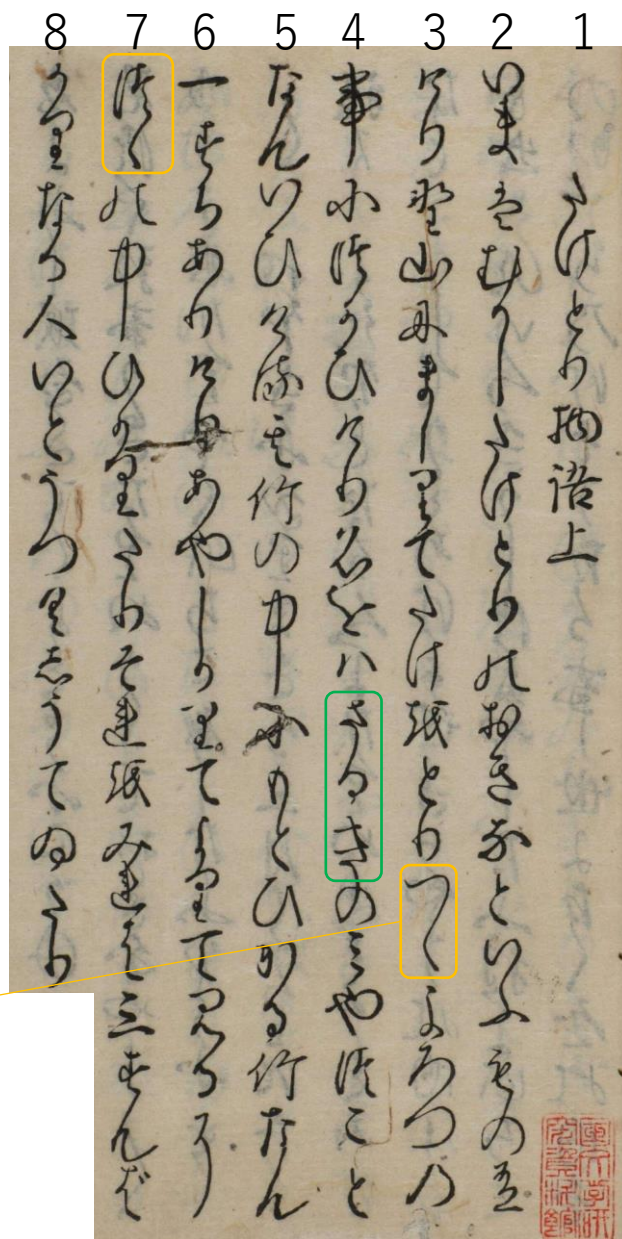 8 7 6 5 4 3 2 1
たけとり物語上
いまはむかしたけとりのおきなといふもの有
けり野山にましりてたけをとりつゝよろつの
事につかひけり名をはさるきのみやつこと
なんいひける其竹の中にもとひかる竹なん
一すちありけりあやしかりてよりて見るに
つゝの中ひかりたりそれをみれは三すんは
かりなる人いとうつくしうてゐたり
國文學研
究資料館